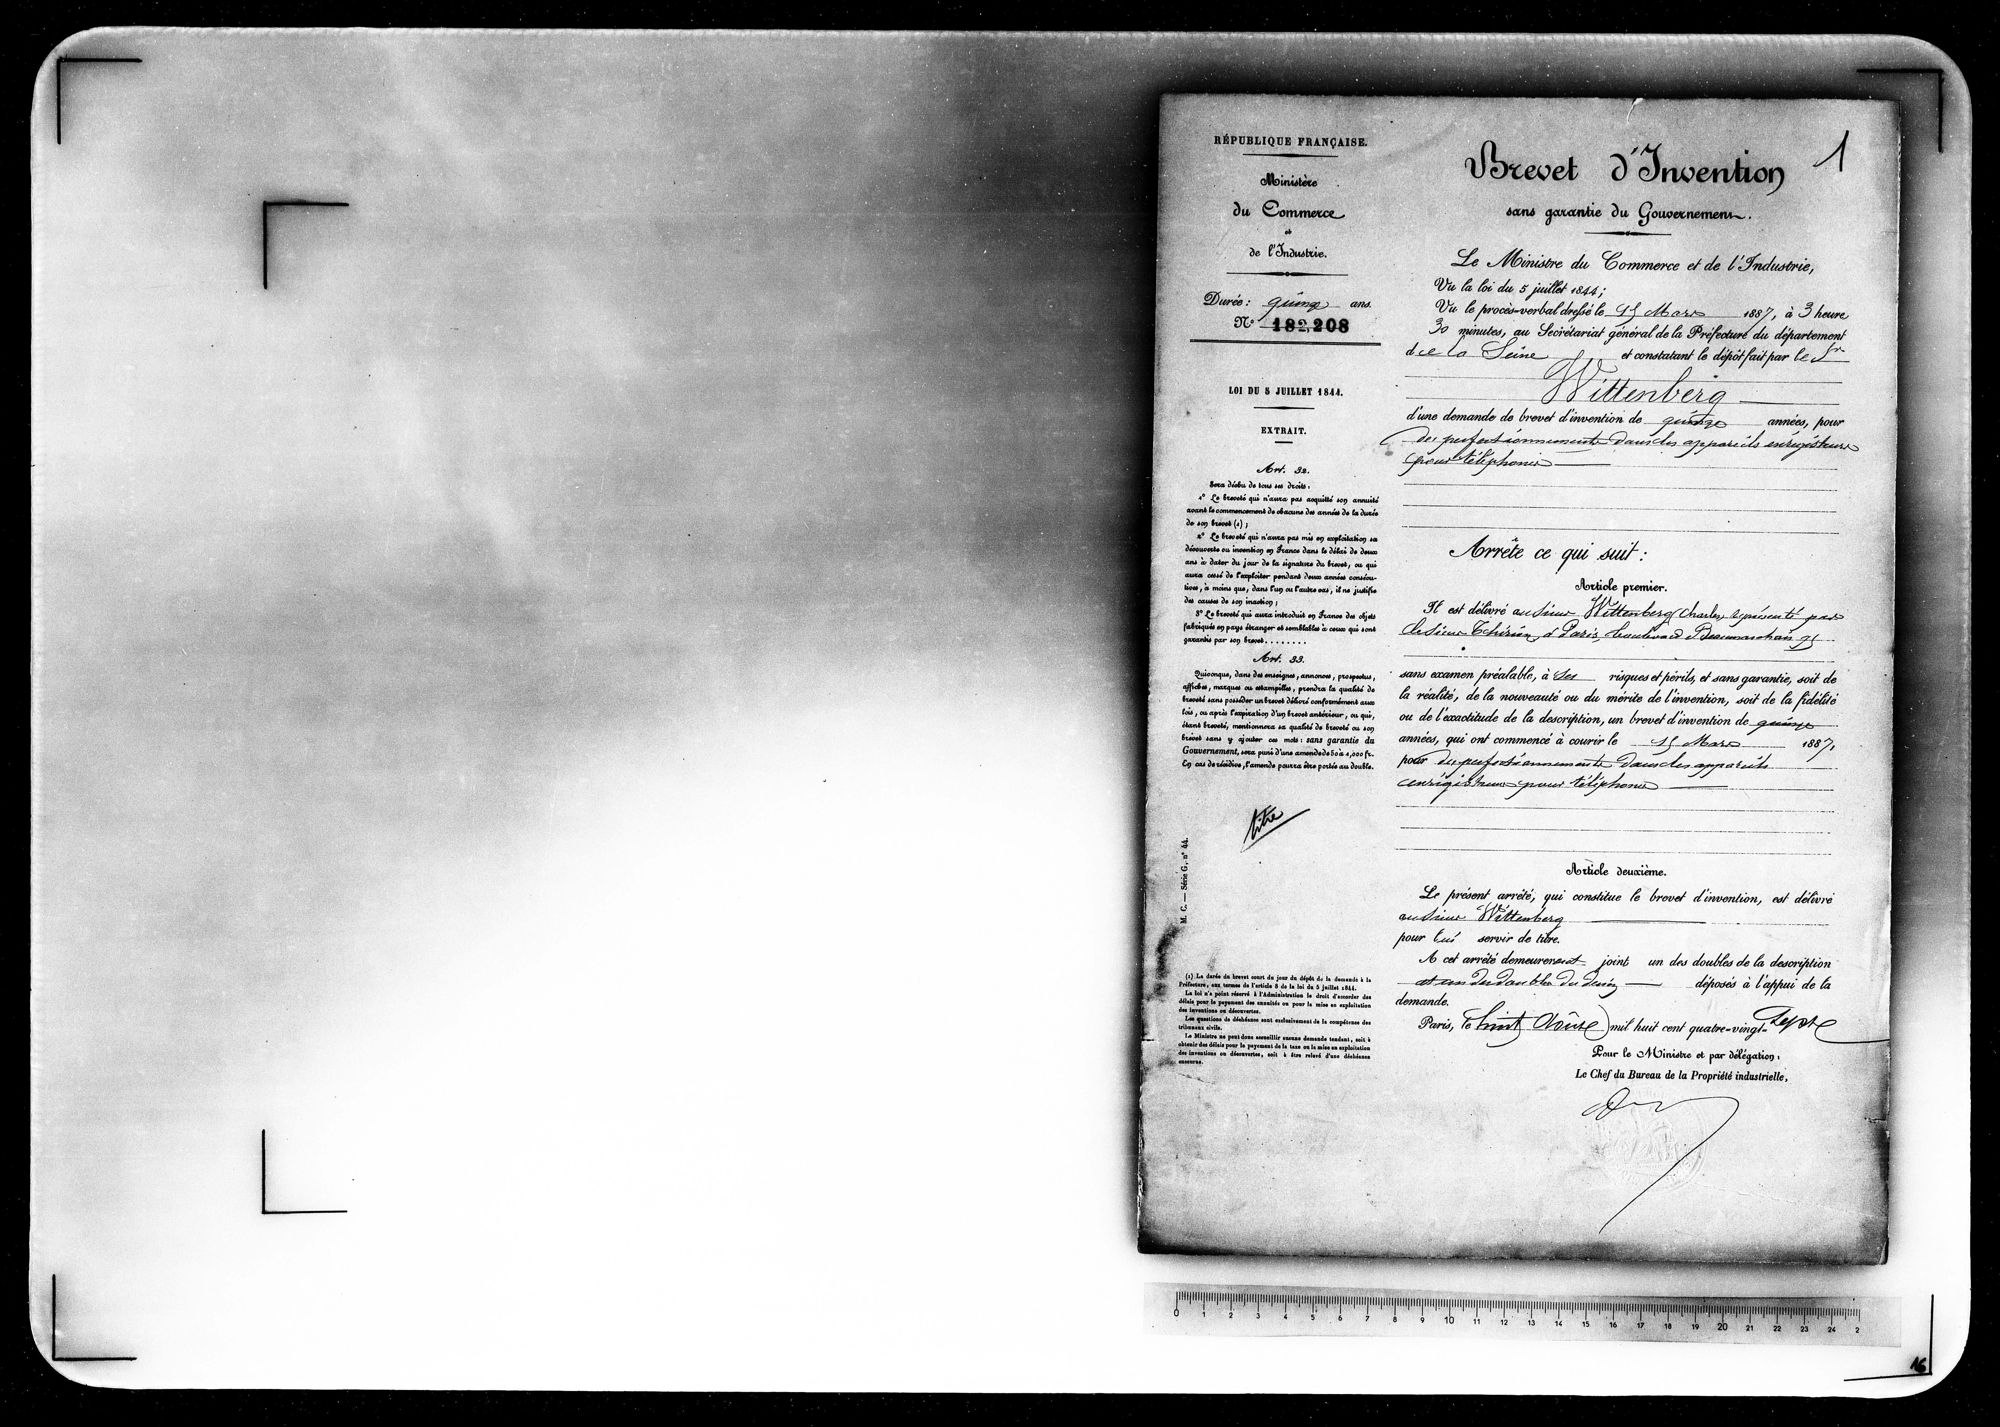 RÉPUBLIQUE FRANÇAISE.
Ministère
du Commerce
et
de l'Industrie.
Durée : quinze ans.
N° 182,208
LOI DU 5 JUILLET 1844.
EXTRAIT.
Art. 32.
Sera déchu de tous ses droits :
1° Le breveté qui n'aura pas acquitté son annuité
avant le commencement de chacune des années de la durée
de son brevet (1) ;
2° Le breveté qui n'aura pas mis en exploitation sa
découverte ou invention en France dans le délai de deux
ans à dater du jour de la signature du brevet, ou qui
aura cessé de l'exploiter pendant deux années consécu-
tives, à moins que, dans l'un ou l'autre cas, il ne justifie
des causes de son inaction ;
3° Le breveté qui aura introduit en France des objets
fabriqués en pays étranger et semblables à ceux qui sont
garantis par son brevet.......
Art. 33.
Quiconque, dans des enseignes, annonces, prospectus,
affiches, marques ou estampilles, prendra la qualité de
breveté sans posséder un brevet délivré conformément aux
lois, ou après l'expiration d'un brevet antérieur, ou qui,
étant breveté, mentionnera sa qualité de breveté ou son
brevet sans y ajouter ces mots : sans garantie du
Gouvernement, sera puni d'une amende de 50 à 1,000 fr.
En cas de récidive, l'amende pourra être portée au double.
titre
M. C. — Série G, n° 44.
(1) La durée du brevet court du jour du dépôt de la demande à la
Préfecture, aux termes de l'article 8 de la loi du 5 juillet 1844.
La loi n'a point réservé à l'Administration le droit d'accorder des
délais pour le payement des annuités ou pour la mise en exploitation
des inventions ou découvertes.
Les questions de déchéance sont exclusivement de la compétence des
tribunaux civils.
Le Ministre ne peut donc accueillir aucune demande tendant, soit à
obtenir des délais pour le payement de la taxe ou la mise en exploitation
des inventions ou découvertes, soit à être relevé d'une déchéance
encourue.
1
Brevet d'Invention
sans garantie du Gouvernement.
Le Ministre du Commerce et de l'Industrie,
Vu la loi du 5 juillet 1844 ;
Vu le procès-verbal dressé le 15 Mars 1887, à 3 heure
30 minutes, au Secrétariat général de la Préfecture du département
de la Seine et constatant le dépôt fait par le Sr
Wittenberg
d'une demande de brevet d'invention de quinze années, pour
des perfectionnements dans les appareils enregistreurs
pour téléphonie
Arrête ce qui suit :
Article premier.
Il est délivré au sieur Wittenberg (Charles) représenté par
le sieur Thirion à Paris, boulevard Beaumarchais 95
sans examen préalable, à ses risques et périls, et sans garantie, soit de
la réalité, de la nouveauté ou du mérite de l'invention, soit de la fidélité
ou de l'exactitude de la description, un brevet d'invention de quinze
années, qui ont commencé à courir le 15 Mars 1887,
pour des perfectionnements dans les appareils
enregistreurs pour téléphonie
Article deuxième.
Le présent arrêté, qui constitue le brevet d'invention, est délivré
au sieur Wittenberg
pour lui servir de titre.
A cet arrêté demeureront joint un des doubles de la description
et un des doubles du dessin déposés à l'appui de la
demande.
Paris, le huit Août mil huit cent quatre-vingt-sept
Pour le Ministre et par délégation :
Le Chef du Bureau de la Propriété industrielle,
0 1 2 3 4 5 6 7 8 9 10 11 12 13 14 15 16 17 18 19 20 21 22 23 24 2
16